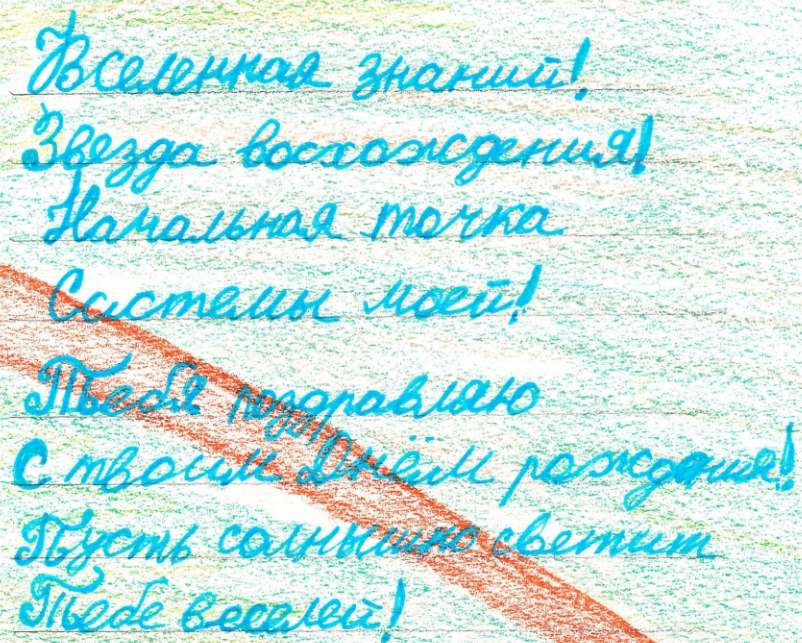 Вселенная знаний!
Звезда восхождения!
Начальная точка
Системы моей!
Тебя поздравляю
С твоим Днём рождения!
Пусть солнышко светит
Тебе веселей!